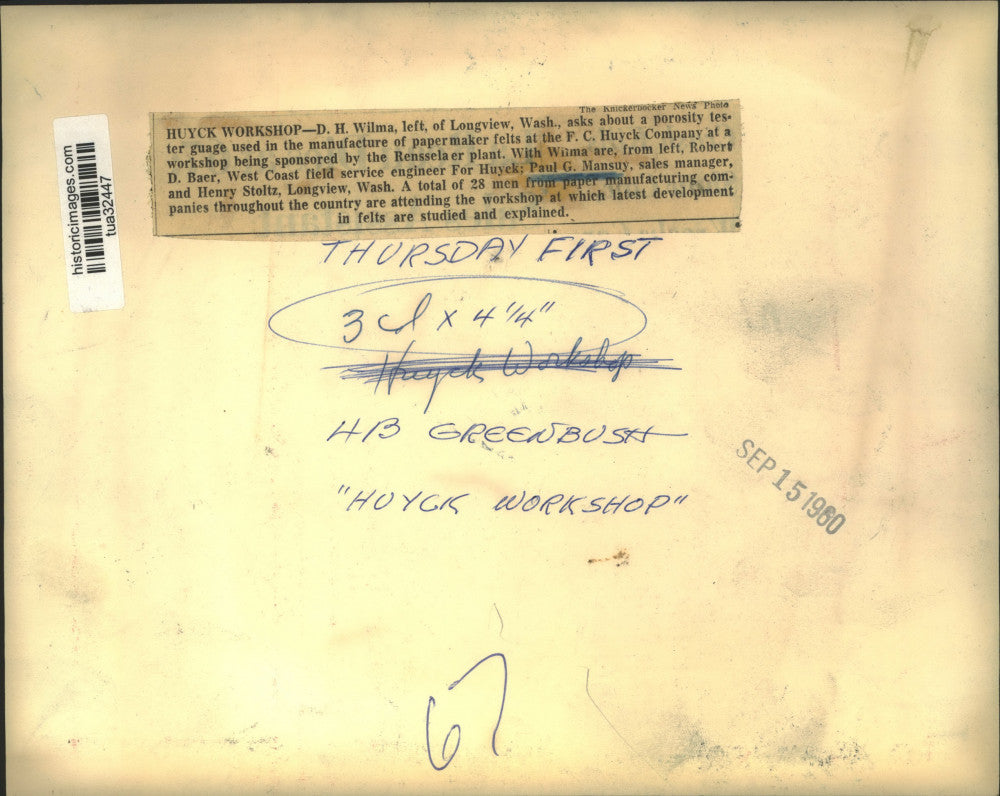 The Knickerbocker News Photo
HUYCK WORKSHOP—D. H. Wilma, left, of Longview, Wash., asks about a porosity tes-
ter guage used in the manufacture of papermaker felts at the F. C. Huyck Company at a
workshop being sponsored by the Rensselaer plant. With Wilma are, from left, Robert
D. Baer, West Coast field service engineer For Huyck; Paul G. Mansuy, sales manager,
and Henry Stoltz, Longview, Wash. A total of 28 men from paper manufacturing com-
panies throughout the country are attending the workshop at which latest development
in felts are studied and explained.
historicimages.com
tua32447
THURSDAY FIRST
3 cl x 4 1/4"
Huyck Workshop
4B GREENBUSH
"HUYCK WORKSHOP"
SEP 15 1960
67